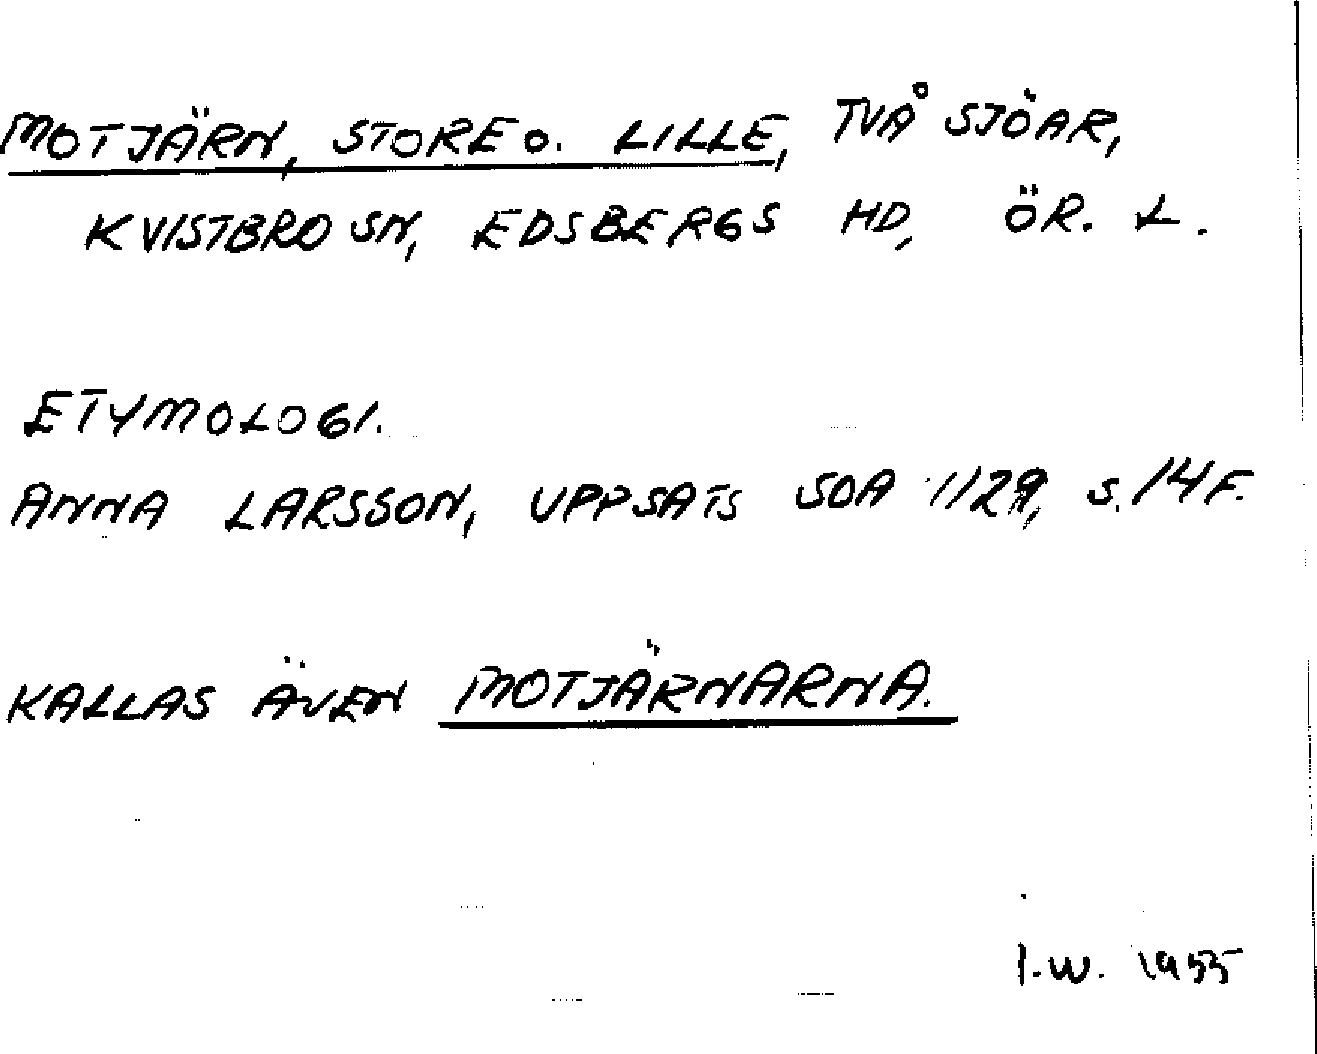 MOTJÄRN, STORE O. LILLE, TVÅ SJÖAR,
KVISTBRO SN, EDSBERGS HD, ÖR. L.
ETYMOLOGI.
ANNA LARSSON, UPPSATS SOA 1/29, S. 14 F.
KALLAS ÄVEN MOTJÄRNARNA.
I.W. 1955